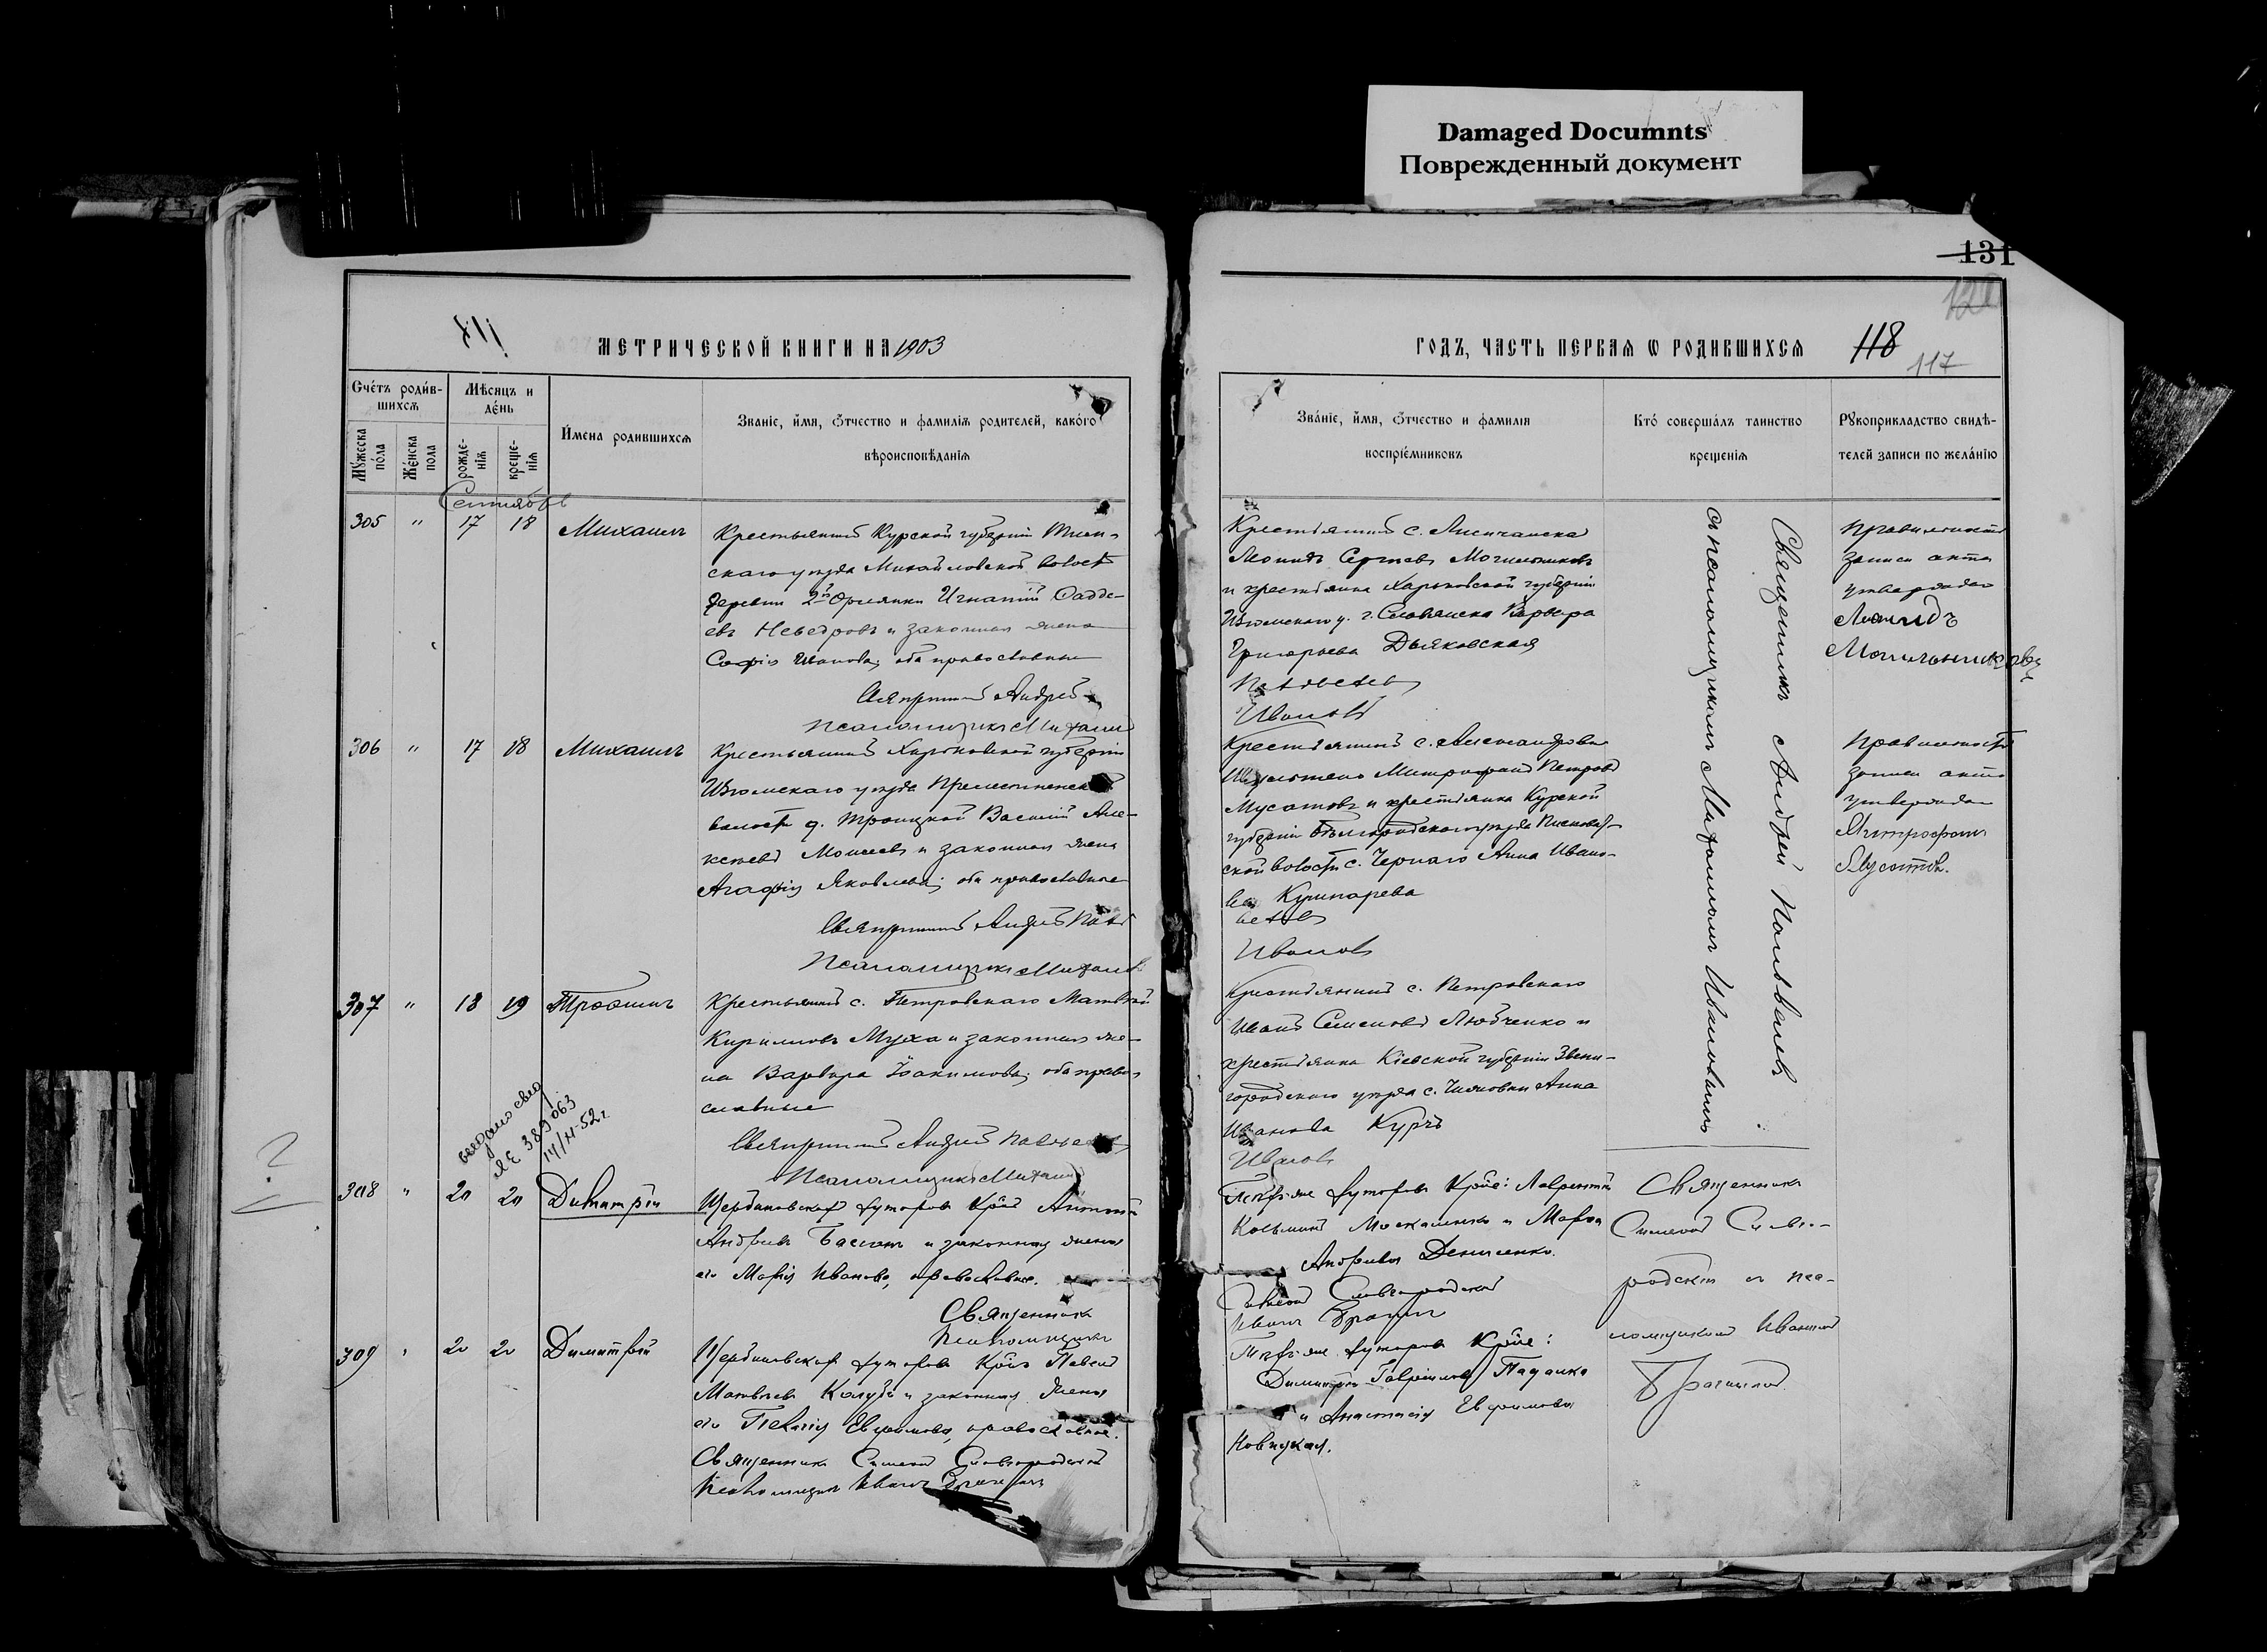 Damaged Documnts
Поврежденный документ
131
121
118
117
МЕТРИЧЕСКОЙ КНИГИ НА 1903
ГОДЪ, ЧАСТЬ ПЕРВАЯ Ѡ РОДИВШИХСЯ
Счетъ родив-
шихся
Мѣсяцъ и
день
Мужеска
пола
Женска
пола
рожде-
нія
креще-
нія
Имена родившихся
Званіе, имя, отчество и фамилія родителей, какого
вѣроисповѣданія
Званіе, имя, отчество и фамилія
воспріемниковъ
Кто совершалъ таинство
крещенія
Рукоприкладство свидѣ-
телей записи по желанію
Сентябрь
305 " 17 18 Михаилъ
Крестьянинъ Курской губерніи Тим-
скаго уѣзда Михайловской волости
деревни 2й Орлянки Игнатій Фадде-
евъ Неведровъ и законная жена
Софія Иванова, оба православные
Священникъ Андрей
Псаломщикъ Михаилъ
Крестьянинъ с. Лисичанска
Леонидъ Сергѣевъ Могильниковъ
и крестьянка Харьковской губерніи
Изюмскаго у. г. Славянска Варвара
Григорьева Дьяковская
Ивановъ
Правильность
записи акта
утверждаю
Леонидъ
Могильниковъ
306 " 17 18 Михаилъ
Крестьянинъ Харьковской губерніи
Изюмскаго уѣзда
волости д. Троицкой Василій Але-
ксѣевъ Моисеевъ и законная жена
Агафія Яковлева, оба православные
Священникъ Андрей
Псаломщикъ Михаилъ
Крестьянинъ с. Александровки
Митрофанъ Петровъ
Мусатовъ и крестьянка Курской
губерніи Бѣлгородскаго уѣзда
ской волости с. Чернаго Анна Ивано-
ва Кушнарева
Ивановъ
Правильность
записи акта
утверждаю
Митрофанъ
Мусатовъ.
Священникъ Андрей
съ псаломщикомъ Михаиломъ Ивановымъ.
307 " 18 19 Трофимъ
Крестьянинъ с. Петровскаго Матвѣй
Кирилловъ Муха и законная же-
на Варвара Іоакимова, оба право-
славные
Священникъ Андрей
Псаломщикъ Михаилъ
Крестьянинъ с. Петровскаго
Иванъ Семеновъ Любченко и
крестьянка Кіевской губерніи Звени-
городскаго уѣзда с. Анна
Иванова Курчъ
Ивановъ
выдано свид.
ЯЕ 389063
14/II-52г.
?
308 " 20 20 Димитрій
Щербиновскихъ хуторовъ Антоній
Андреевъ и законная жена
его Марія Иванова, православные.
Священникъ
Псаломщикъ
хуторовъ Лаврентій
Козьминъ Москаленко и Марѳа
Андреева Денисенко.
Священникъ
Симеонъ
и пса-
ломщикомъ Иваномъ
309 " 20 20 Димитрій
Щербиновскихъ хуторовъ Павелъ
Матвѣевъ и законная жена
его Пелагія Евфимова, православные.
Священникъ Симеонъ
Псаломщикъ Иванъ
хуторовъ
Димитрій Гавриловъ Падалка
и Анастасія Евфимова
Новицкая.